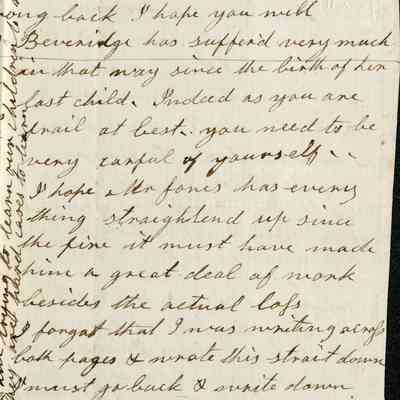 ong back I hope you will
Beveridge has sufferd very much
in that way since the birth of her
last child. Indeed as you are
frail at best.. you need to be
very carful of yourself..
I hope Mr Jones has every
thing straightend up since
the fire it must have made
him a great deal of work
besides the actual loss
I forgot that I was writing across
both pages & wrote this strait down
must go back & write down
trying to learn our children